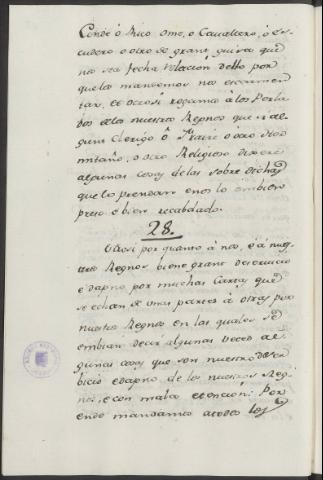 Conde ó Rico ome, o Cavallero, o es-
cudero o otro de grant guisa que
nos sea fecha relacion dello por
que lo mandemos nos escarmen-
tar, et otrosi rogamos á los Perla-
dos de los nuestros Regnos que si al-
gunt Clerigo ó Fraire o otro
o otro Religioso dixere
algunas cosas de las sobre dichas
que lo prendan e nos lo embien
preso e bien recabdado.
28.
Otrosi por quanto á nos, é á nues-
tros Regnos viene grant deservicio
e dapno por muchas Cartas que
se echan de unas partes á otras por
nuestros Regnos en las quales se
embian decir algunas veces al-
gunas cosas que son nuestro deser-
bicio e dapno de los nuestros Reg-
nos, e con mala entencion: Por
ende mandamos a todos los